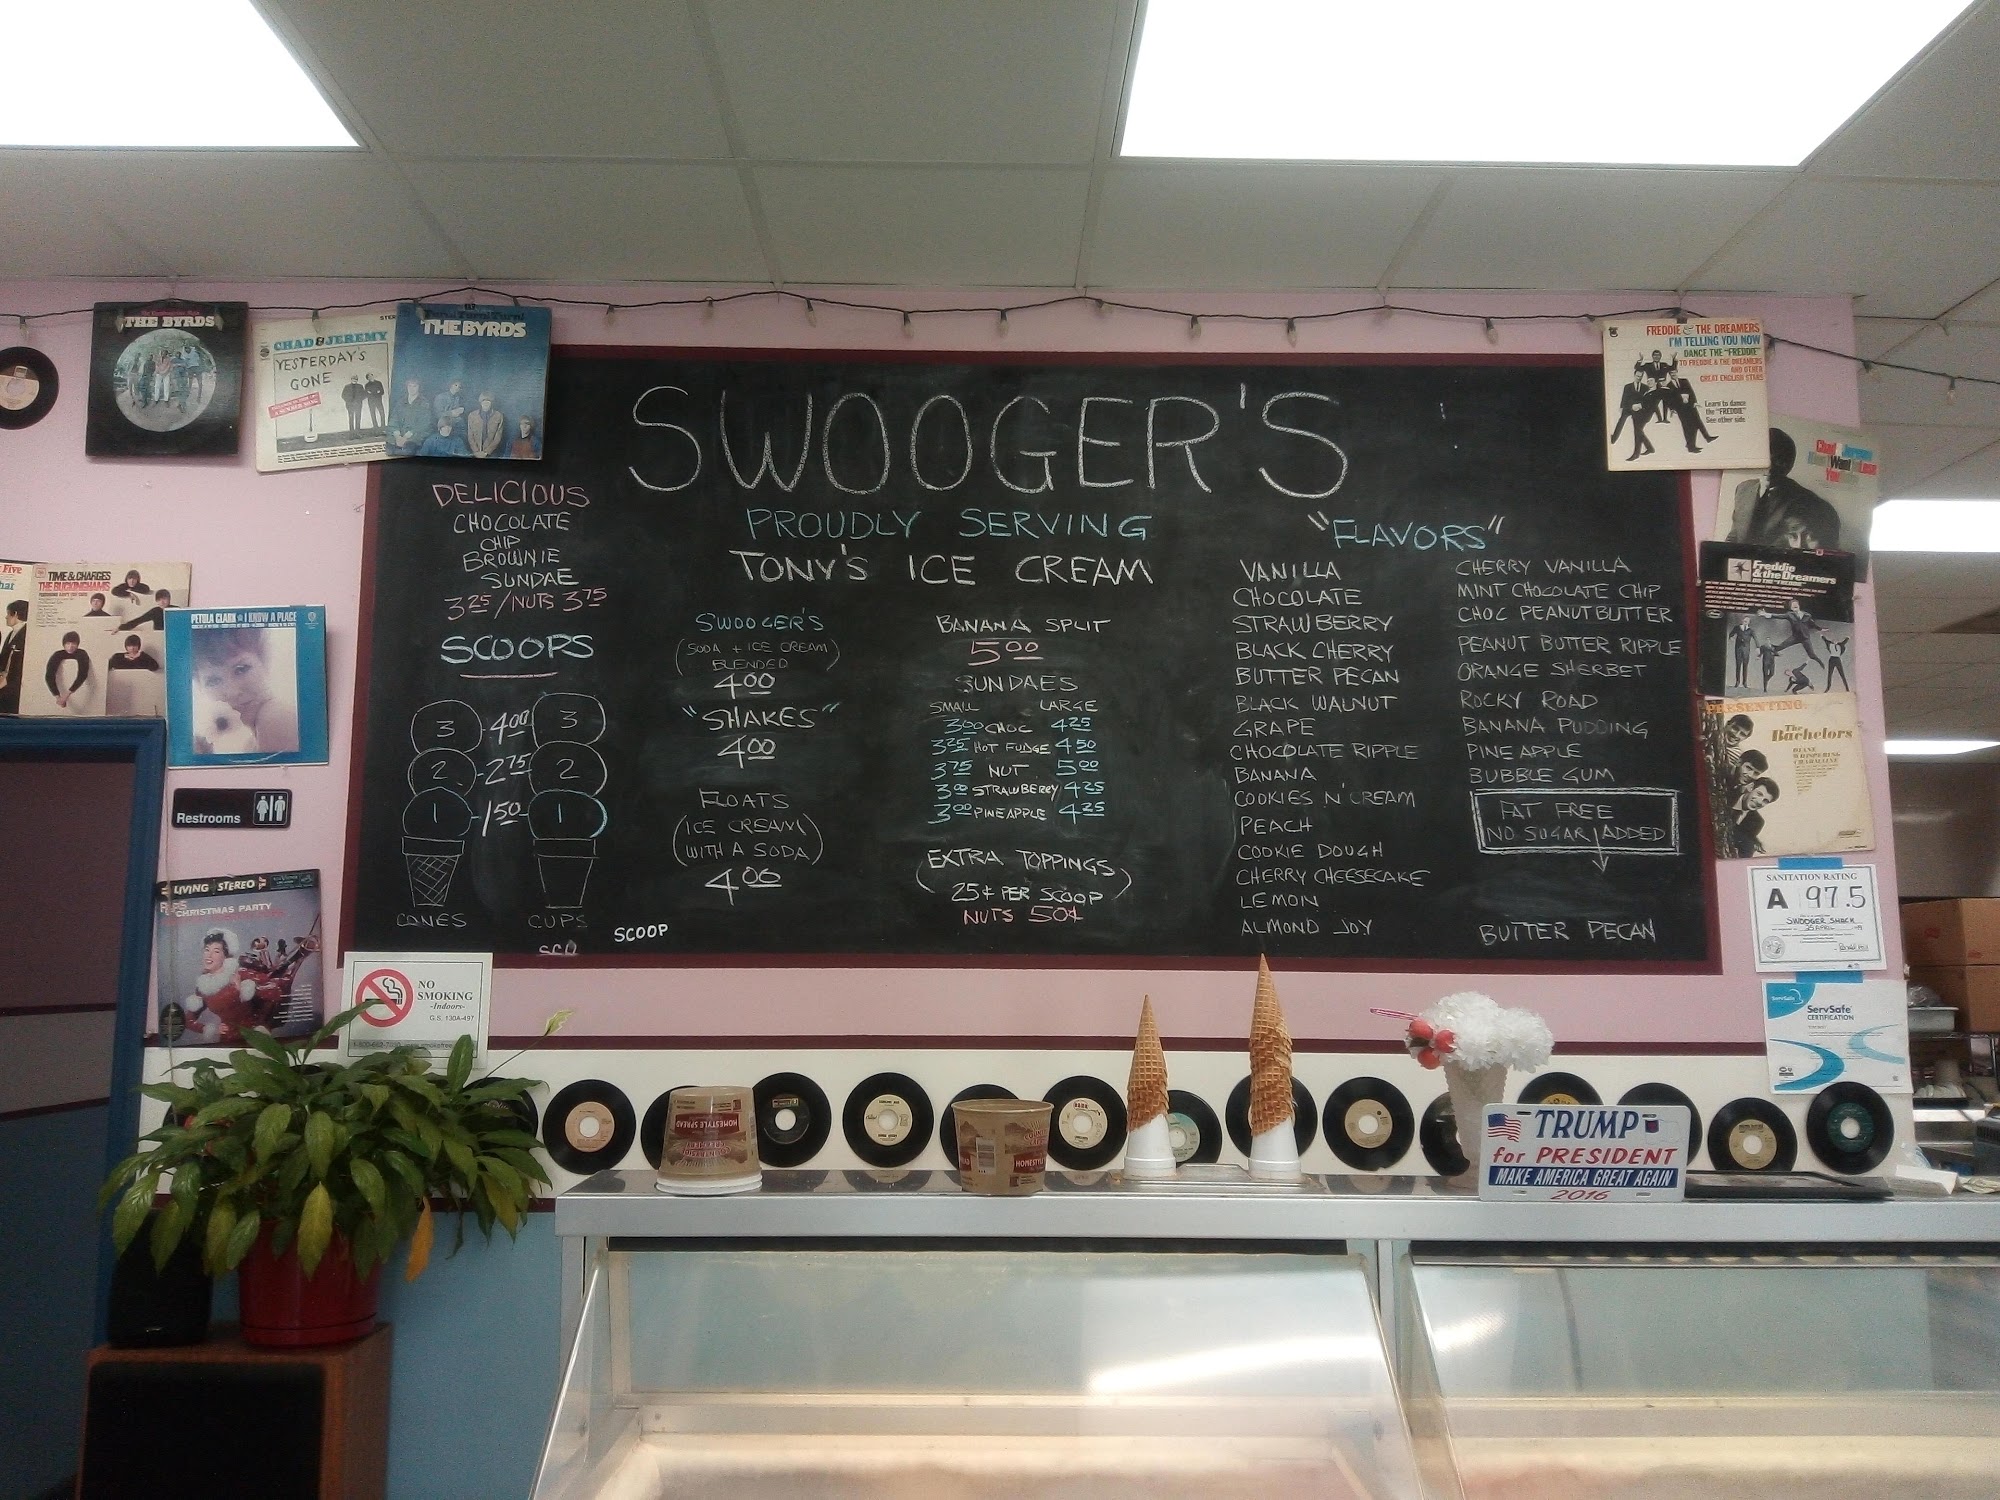 SWOOGER'S
PROUDLY SERVING
TONY'S ICE CREAM
DELICIOUS
CHOCOLATE
CHIP
BROWNIE
SUNDAE
3.25/NUTS 3.75
SCOOPS
3 4.00 3
2 2.75 2
1 1.50 1
CONES CUPS
SCO
SCOOP
SWOOGER'S
(SODA + ICE CREAM
BLENDED)
4.00
"SHAKES"
4.00
FLOATS
(ICE CREAM
WITH A SODA)
4.00
BANANA SPLIT
5.00
SUNDAES
SMALL LARGE
3.00 CHOC 4.25
3.25 HOT FUDGE 4.50
3.75 NUT 5.00
3.00 STRAWBERRY 4.25
3.00 PINEAPPLE 4.25
(EXTRA TOPPINGS)
25¢ PER SCOOP
NUTS 50¢
"FLAVORS"
VANILLA
CHOCOLATE
STRAWBERRY
BLACK CHERRY
BUTTER PECAN
BLACK WALNUT
GRAPE
CHOCOLATE RIPPLE
BANANA
COOKIES N' CREAM
PEACH
COOKIE DOUGH
CHERRY CHEESECAKE
LEMON
ALMOND JOY
CHERRY VANILLA
MINT CHOCOLATE CHIP
CHOC PEANUTBUTTER
PEANUT BUTTER RIPPLE
ORANGE SHERBET
ROCKY ROAD
BANANA PUDDING
PINEAPPLE
BUBBLE GUM
FAT FREE
NO SUGAR ADDED
BUTTER PECAN
THE BYRDS
STER
CHAD & JEREMY
YESTERDAY'S
GONE
A SUMMER SONG
Turn! Turn! Turn!
THE BYRDS
Five
hat
TIME & CHARGES
THE BUCKINGHAMS
PETULA CLARK I KNOW A PLACE
Restrooms
LIVING STEREO
POPS
CHRISTMAS PARTY
NO
SMOKING
-Indoors-
G.S. 130A-497
FREDDIE & THE DREAMERS
I'M TELLING YOU NOW
DANCE THE "FREDDIE"
TO FREDDIE & THE DREAMERS
AND OTHER
GREAT ENGLISH STARS
Learn to dance
the "FREDDIE"
See other side
Chad & Jeremy
Don't Want to Lose
You
Freddie
& the Dreamers
PRESENTING:
The
Bachelors
DIANE
WHISPERING
CHARMAINE
SANITATION RATING
A 97.5
SWOOGER SHACK
ServSafe
ServSafe
CERTIFICATION
HOMESTYLE SPREAD
COUNTRY
HOMESTYLE
TRUMP
for PRESIDENT
MAKE AMERICA GREAT AGAIN
2016